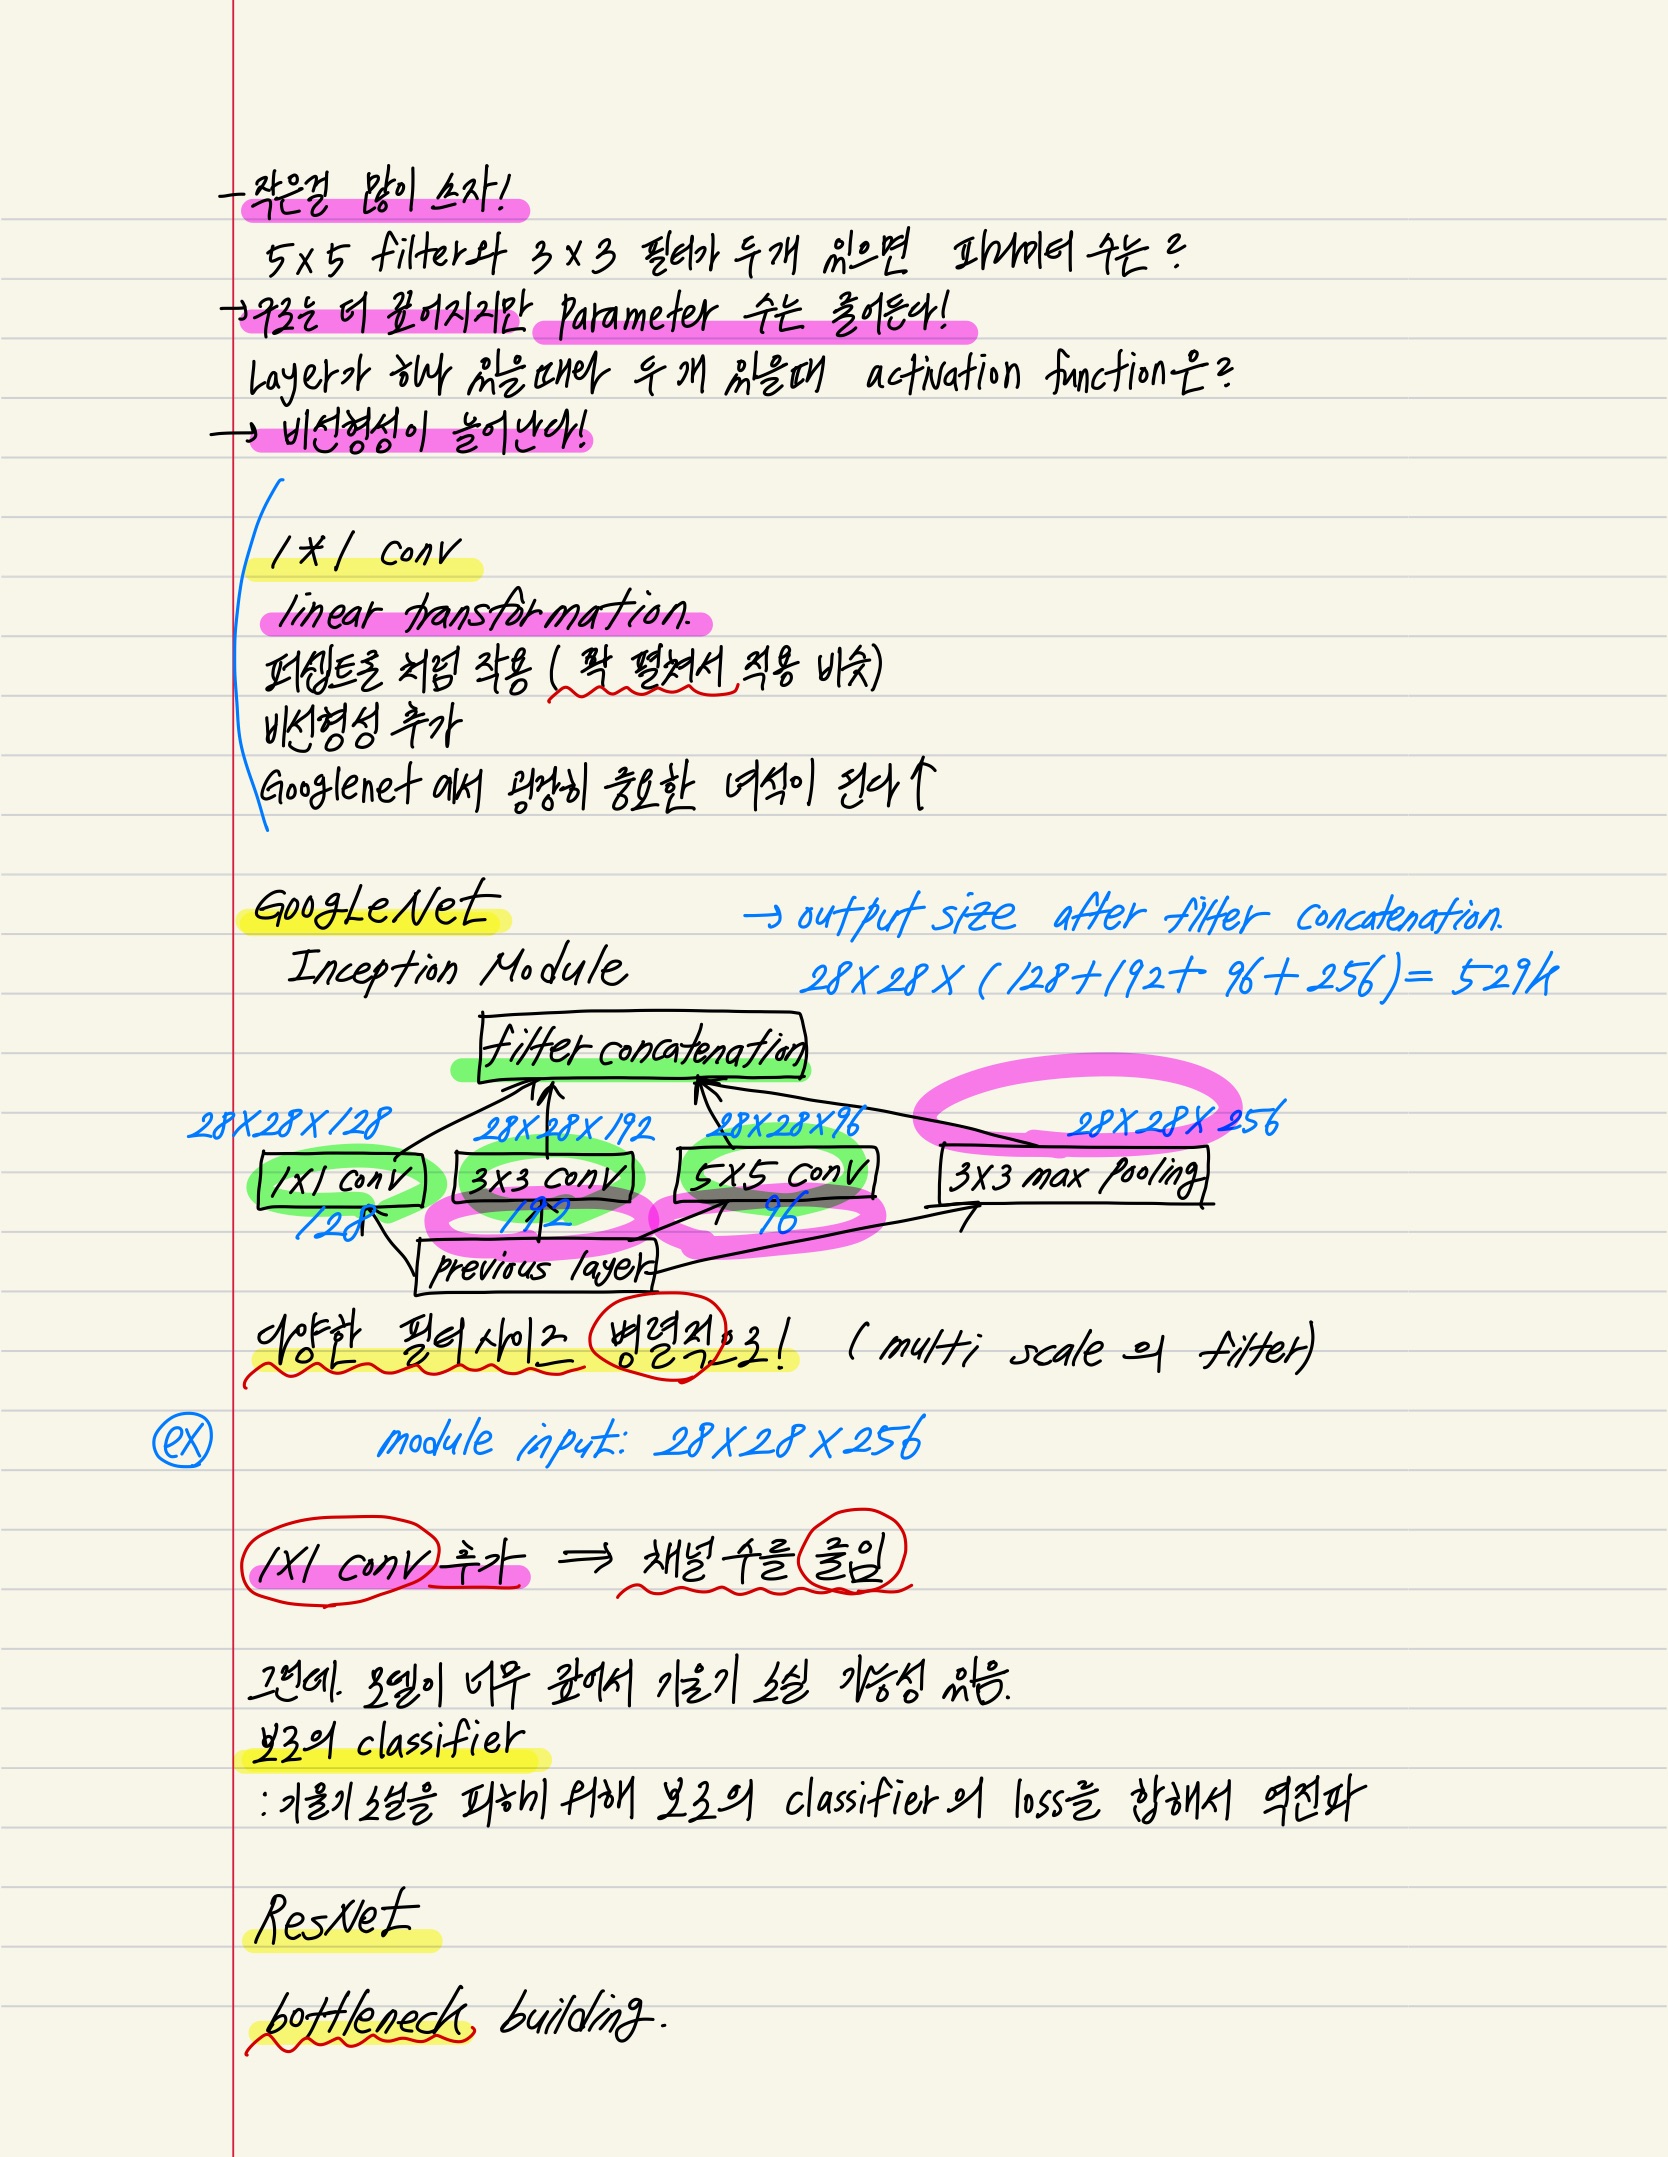 - 작은걸 많이 쓰자!
5x5 filter와 3x3 필터가 두개 있으면 파라미터 수는?
→ 구조는 더 깊어지지만 parameter 수는 줄어든다!
Layer가 하나 있을때와 두개 있을때 activation function은?
→ 비선형성이 늘어난다!
1*1 conv
linear transformation.
퍼셉트론 처럼 작용 (쫙 펼쳐서 적용 비슷)
비선형성 추가
Googlenet에서 굉장히 중요한 녀석이 된다↑
GoogLeNet
→ output size after filter concatenation.
Inception Module
28X28X(128+192+96+256)= 529k
filter concatenation
28X28X128 28X28X192 28X28X96 28X28X256
1X1 conv 3X3 conv 5X5 conv 3X3 max pooling
128 192 96
previous layer
다양한 필터 사이즈 병렬적으로! (multi scale의 filter)
ex module input: 28X28X256
1X1 conv 추가 ⇒ 채널 수를 줄임
그런데. 모델이 너무 깊어서 기울기 소실 가능성 있음.
보조의 classifier
: 기울기 소실을 피하기 위해 보조의 classifier의 loss를 합해서 역전파
ResNet
bottleneck building.